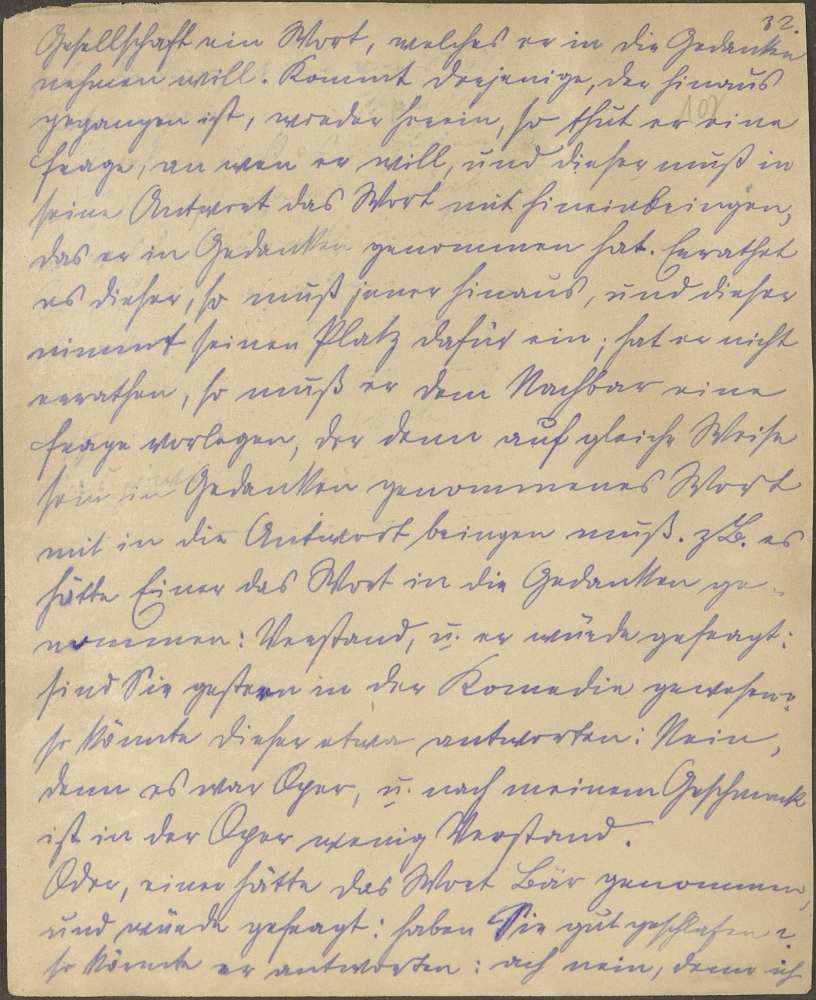 32.
Gesellschaft ein Wort, welches er in die Gedanken
nehmen will. Kommt derjenige, der hinaus
gegangen ist, wieder herein, so thut er eine
Frage, an wen er will, und dieser muß in
seine Antwort das Wort mit hineinbringen,
das er in Gedanken genommen hat. Errathet
es dieser, so muß jener hinaus, und dieser
nimmt seinen Platz dafür ein; hat er nicht
errathen, so muß er dem Nachbar eine
Frage vorlegen, der denn auf gleiche Weise
sein in Gedanken genommenes Wort
mit in die Antwort bringen muß. z.B. es
hätte Einer das Wort in die Gedanken ge-
nommen: Verstand, u. er würde gefragt:
sind Sie gestern in der Komedie gewesen?
so könnte dieser etwa antworten: Nein,
denn es war Oper, u. nach meinem Geschmack
ist in der Oper wenig Verstand.
Oder, einer hätte das Wort Bär genommen,
und würde gefragt: haben Sie gut geschlafen?
so könnte er antworten: ach nein, denn ich